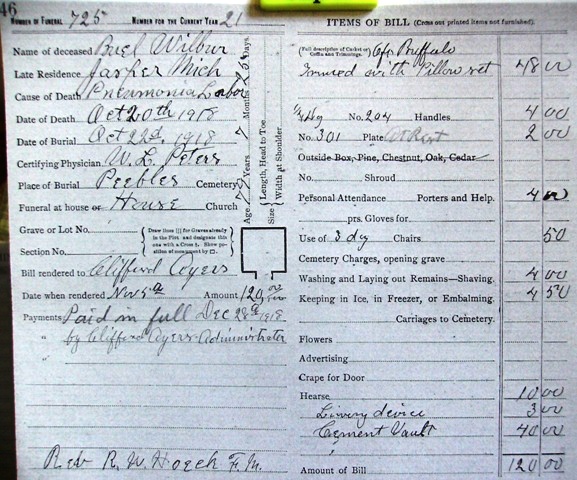 46
NUMBER OF FUNERAL 725 NUMBER FOR THE CURRENT YEAR 21
Name of deceased Buel Wilbur
Late Residence Jasper Mich
Cause of Death Pneumonia Lobar
Date of Death Oct 20th 1918
Date of Burial Oct 22d 1918
Certifying Physician W. L. Peters
Place of Burial Peebles Cemetery
Funeral at house or House Church
Grave or Lot No.
Section No.
Draw lines ||| for Graves already in the Plot and designate this one with a Cross †. Show position of monument by □.
Bill rendered to Clifford Ayers
Date when rendered Nov 5th Amount 120
Payments Paid in full Dec 28th 1918
" by Clifford Ayers Administrator
"
Rev R. W. Hoech F. M.
Age 77 Years 7 Months 25 Days
Size Length, Head to Toe
Width at Shoulder
ITEMS OF BILL (Cross out printed items not furnished).
(Full description of Casket or Coffin and Trimmings.) Buffalo
Trimmed with Pillow set 48 00
No. 204 Handles 4 00
No. 301 Plate At Rest 2 00
Outside Box, Pine, Chestnut, Oak, Cedar
No. Shroud
Personal Attendance Porters and Help. 4 00
prs. Gloves for
Use of 3 dz Chairs 50
Cemetery Charges, opening grave
Washing and Laying out Remains—Shaving. 4 00
Keeping in Ice, in Freezer, or Embalming. 4 50
Carriages to Cemetery.
Flowers
Advertising
Crape for Door
Hearse 10 00
Livery 3 00
Cement Vault 40 00
Amount of Bill 120 00